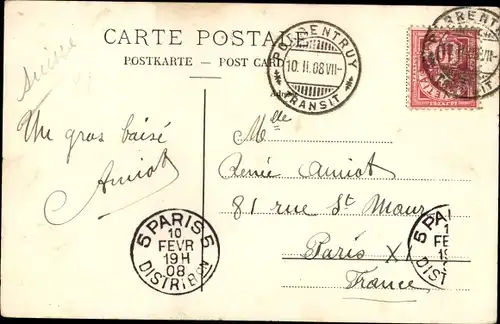 CARTE POSTALE
POSTKARTE — POST CARD
Suisse
PORRENTRUY
10. II. 08 VII-
TRANSIT
Un gros baisé
Amiot
Mlle
Renée Amiot
81 rue St Maur
Paris XI
France
5 PARIS 5
10
FEVR
19H
08
DISTRIBON
5 PA
1
FE
19
DIST